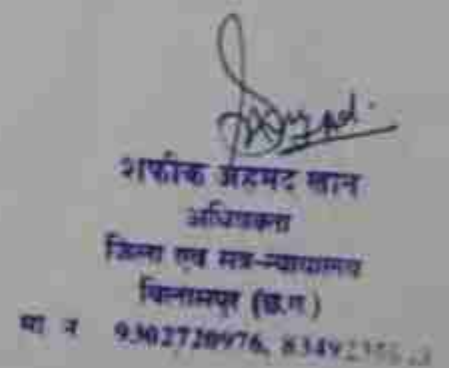 शफीक अहमद खान
अधिवक्ता
जिला एवं सत्र-न्यायालय
बिलासपुर (छ.ग.)
मो नं 9302720976,